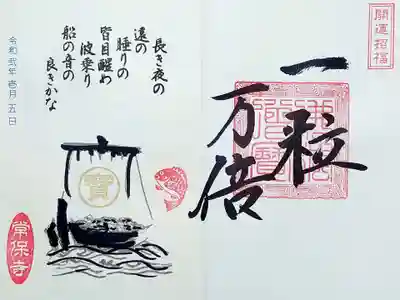 開運招福
一粒
万倍
長き夜の
遠の
睡りの
皆目醒め
波乗り
船の音の
良きかな
令和弐年 壱月 五日
寶
常保寺